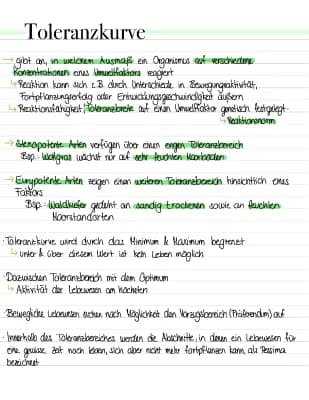 Toleranzkurve
→ gibt an, in welchem Ausmaß ein Organismus auf verschiedene
Konzentrationen eines Umweltfaktors reagiert
↳ Reaktion kann sich z.B. durch Unterschiede in Bewegungsaktivität,
Fortpflanzungserfolg oder Entwicklungsgeschwindigkeit äußern
↳ Reaktionsfähigkeit/Toleranzbreite auf einen Umweltfaktor genetisch festgelegt
↳ Reaktionsnorm
→ Stenopotente Arten verfügen über einen engen Toleranzbereich
Bsp.: Wollgras wächst nur auf sehr feuchten Moorböden
→ Eurypotente Arten zeigen einen weiteren Toleranzbereich hinsichtlich eines
Faktors
Bsp.: Waldkiefer gedeiht an sandig trockenen sowie an feuchten
Moorstandorten
·Toleranzkurve wird durch das Minimum & Maximum begrenzt
↳ unter & über diesem Wert ist kein Leben möglich
·Dazwischen Toleranzbereich mit dem Optimum
↳ Aktivität der Lebewesen am höchsten
·Bewegliche Lebewesen suchen nach Möglichkeit den Vorzugsbereich (Präferendum) auf
·Innerhalb des Toleranzbereiches werden die Abschnitte, in denen ein Lebewesen für
eine gewisse Zeit noch leben, sich aber nicht mehr fortpflanzen kann, als Pessima
bezeichnet